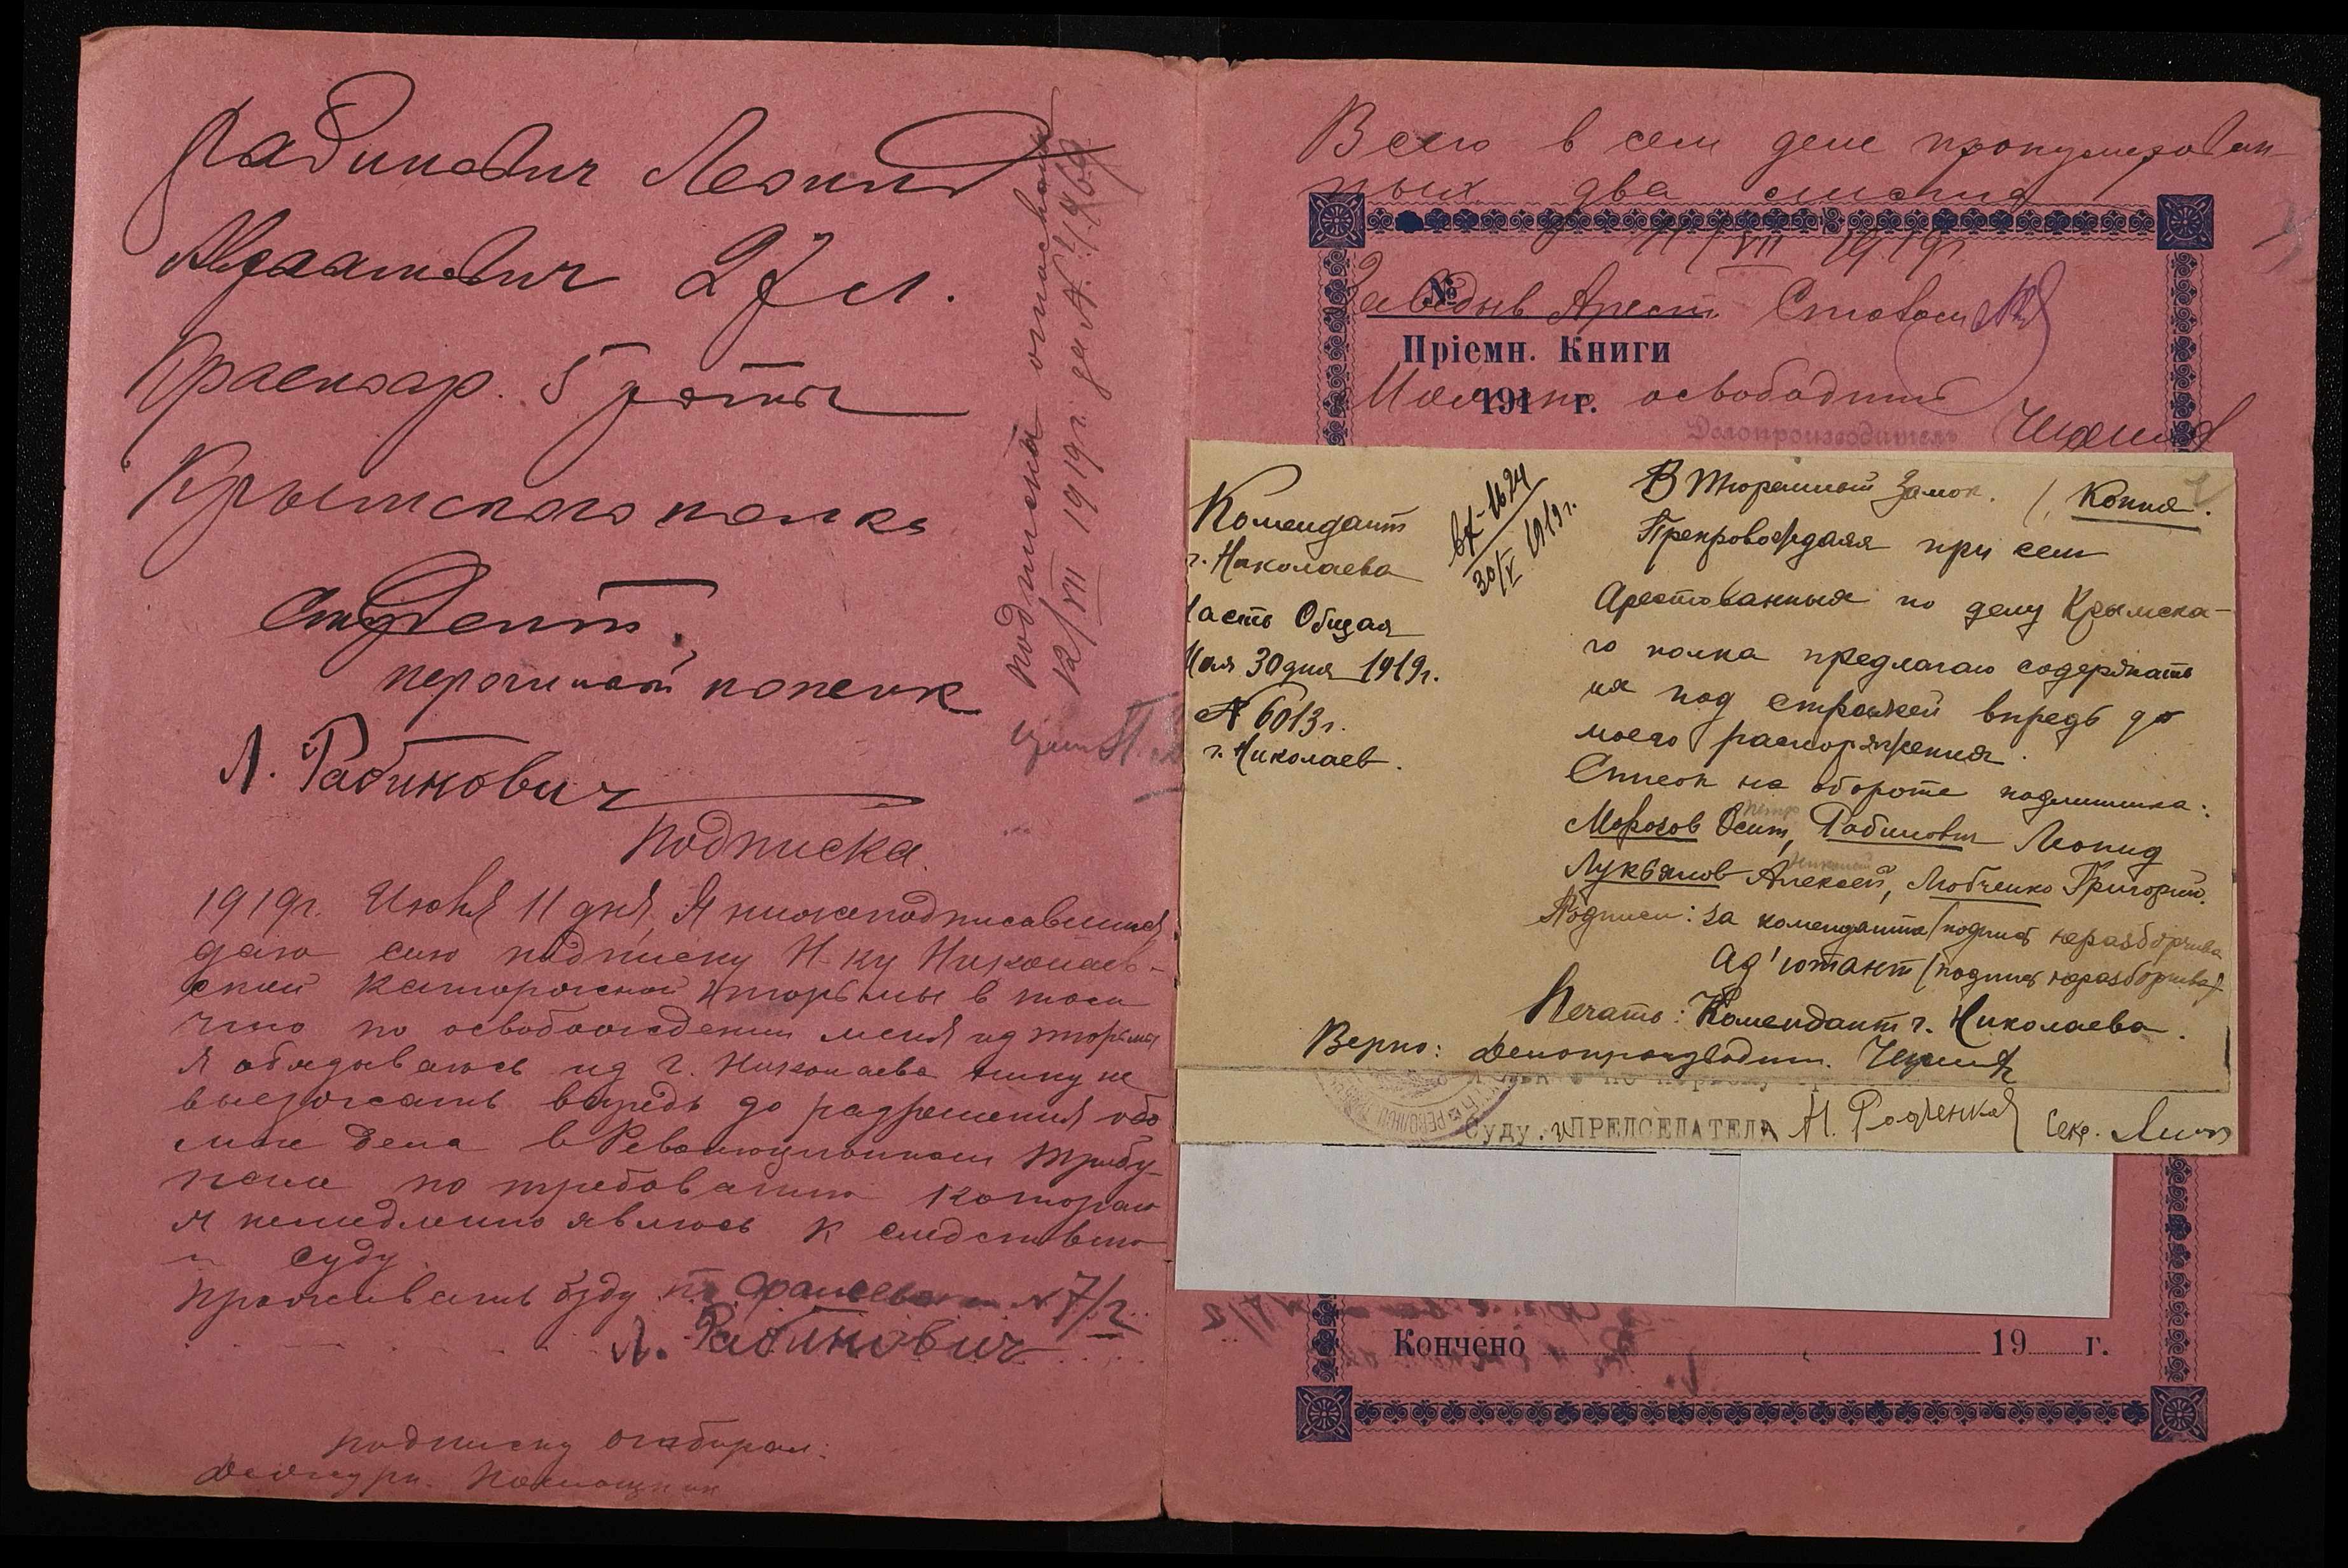 Рабинович Леонид
Абрамович 27 л.
Красноар. 5 роты
Крымского полка
Студент.
перочиный ножик
Л. Рабинович
Подписка
1919г. Июня 11 дня, Я нижеподписавшийся
даю сию подписку Н-ку Николаев-
ской каторжной тюрьмы в том
что по освобождении меня из тюрьмы
я обязываюсь из г. Николаева никуда не
выезжать впредь до разрешения обо
мне дела в Революционном Трибу-
нале по требованию которого
я немедленно явлюсь к следствию
и суду
Проживать буду по № 7/2
Л. Рабинович
Подписку отобрал:
Дежурн. Помощник
Подписка отослана
12/VII 1919г. за № 1469
Всего в сем деле пронумерован-
ных два листа
11/VII 1919г.
Заведыв Арест. Столом
№
Пріемн. Книги
191 г.
освободить
Делопроизводитель
Комендант
г. Николаева
Часть Общая
Мая 30 дня 1919г.
№ 6013г.
г. Николаев.
вх-1624
30/V 1919г.
В Тюремный Замок. / Копия.
Препровождая при сем
Арестованныя по делу Крымска-
го полка предлагаю содержать
их под стражей впредь до
моего распоряжения.
Список на обороте подлинника:
Морозов Осип, Рабинович Леонид
Лукьянов Алексей, Любченко Григорий.
Подписи: за коменданта /подпись неразборчива
Ад'ютант /подпись неразборчива/
Печать: Комендант г. Николаева.
Верно: Делопроизводит.
Суду. ПРЕДСЕДАТЕЛЬ Секр.
Кончено 19 г.